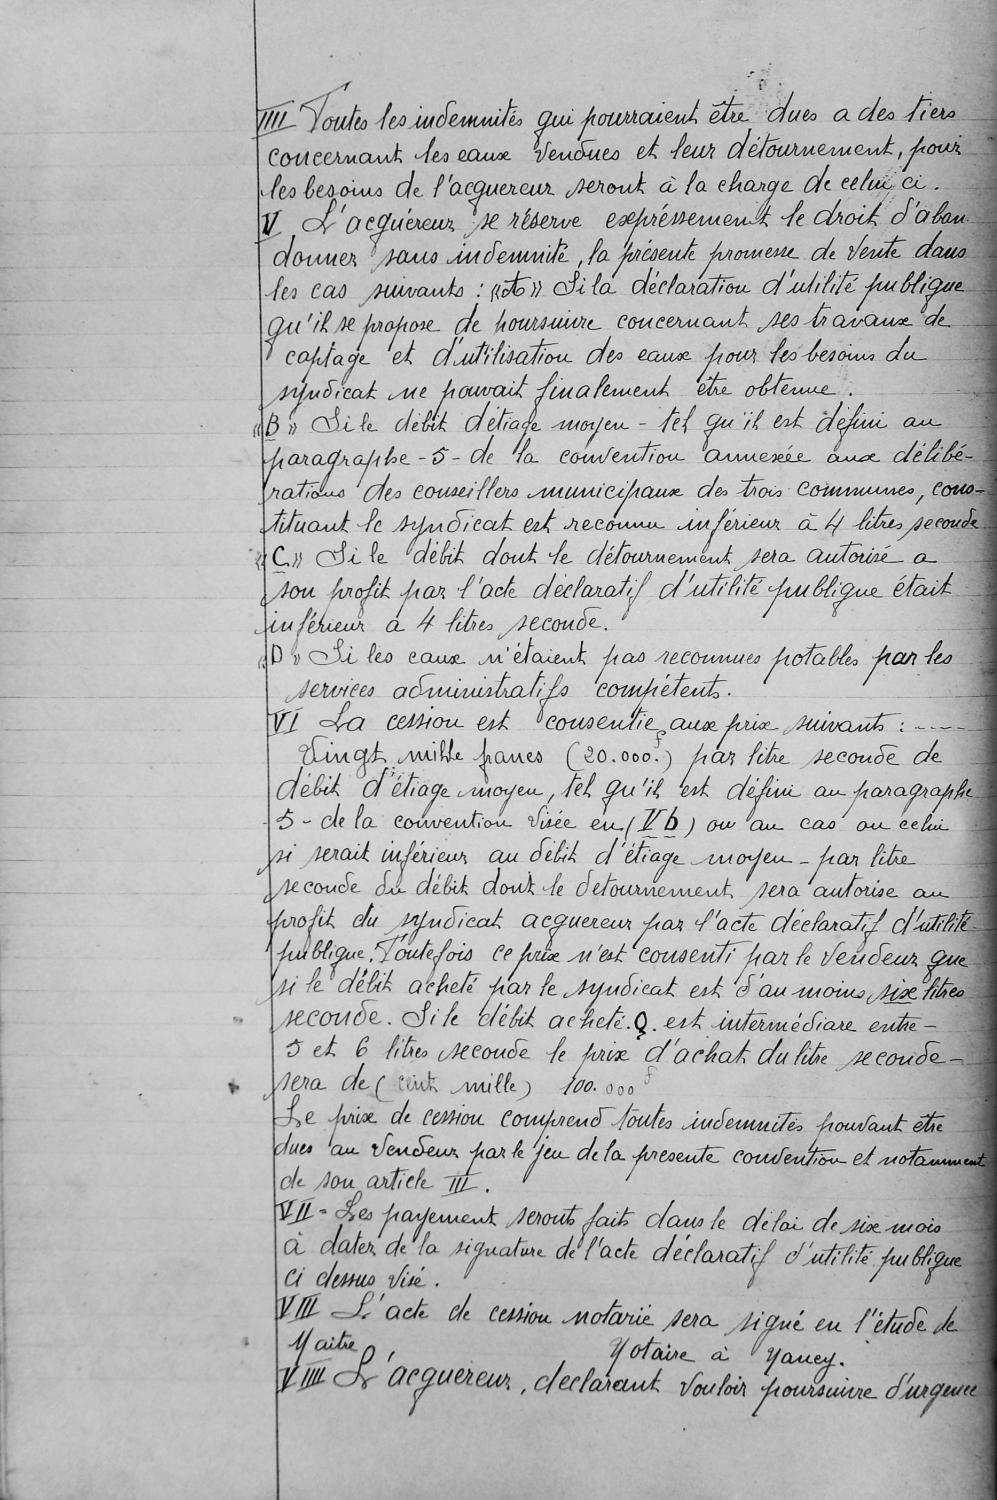 IIII Toutes les indemnités qui pourraient être dues a des tiers
concernant les eaux vendues et leur détournement, pour
les besoins de l'acquereur seront à la charge de celui ci.
V L'acquéreur se réserve expréssement le droit d'aban
donner sans indemnité, la présente promesse de vente dans
les cas suivants : «A» Si la déclaration d'utilité publique
qu'il se propose de poursuivre concernant ses travaux de
captage et d'utilisation des eaux pour les besoins du
syndicat ne pouvait finalement être obtenue.
«B» Si le débit détiage moyen - tel qu'il est défini au
paragraphe - 5 - de la convention annexée aux délibé-
rations des conseillers municipaux des trois communes, cons-
tituant le syndicat est reconnu inférieur à 4 litres seconde
«C» Si le débit dont le détournement sera autorisé a
son profit par l'acte déclaratif d'utilité publique était
inférieur à 4 litres seconde.
«D» Si les eaux n'étaient pas reconnues potables par les
services administratifs compétents.
VI La cession est consentie aux prix suivants : ----
Vingt mille francs (20.000.f) par litre seconde de
débit d'étiage moyen, tel qu'il est défini au paragraphe
- 5 - de la convention visée en (V b) ou au cas ou celui
si serait inférieur au débit d'étiage moyen - par litre
seconde du débit dont le detournement sera autorise au
profit du syndicat acquereur par l'acte déclaratif d'utilité
publique. Toutefois ce prix n'est consenti par le vendeur que
si le débit acheté par le syndicat est d'au moins six litres
seconde. Si le débit acheté. Q. est intermédiare entre -
5 et 6 litres seconde le prix d'achat du litre seconde -
sera de (cent mille) 100.000 f
Le prix de cession comprend toutes indemnités pouvant être
dues au vendeur par le jeu de la presente convention et notamment
de son article III.
VII - Les payement seronts faits dans le délai de six mois
à dater de la signature de l'acte déclaratif d'utilité publique
ci dessus visé.
VIII L'acte de cession notarié sera signé en l'étude de
Maitre Notaire à Nancy.
VIIII L'acquereur, declarant vouloir poursuivre d'urgence